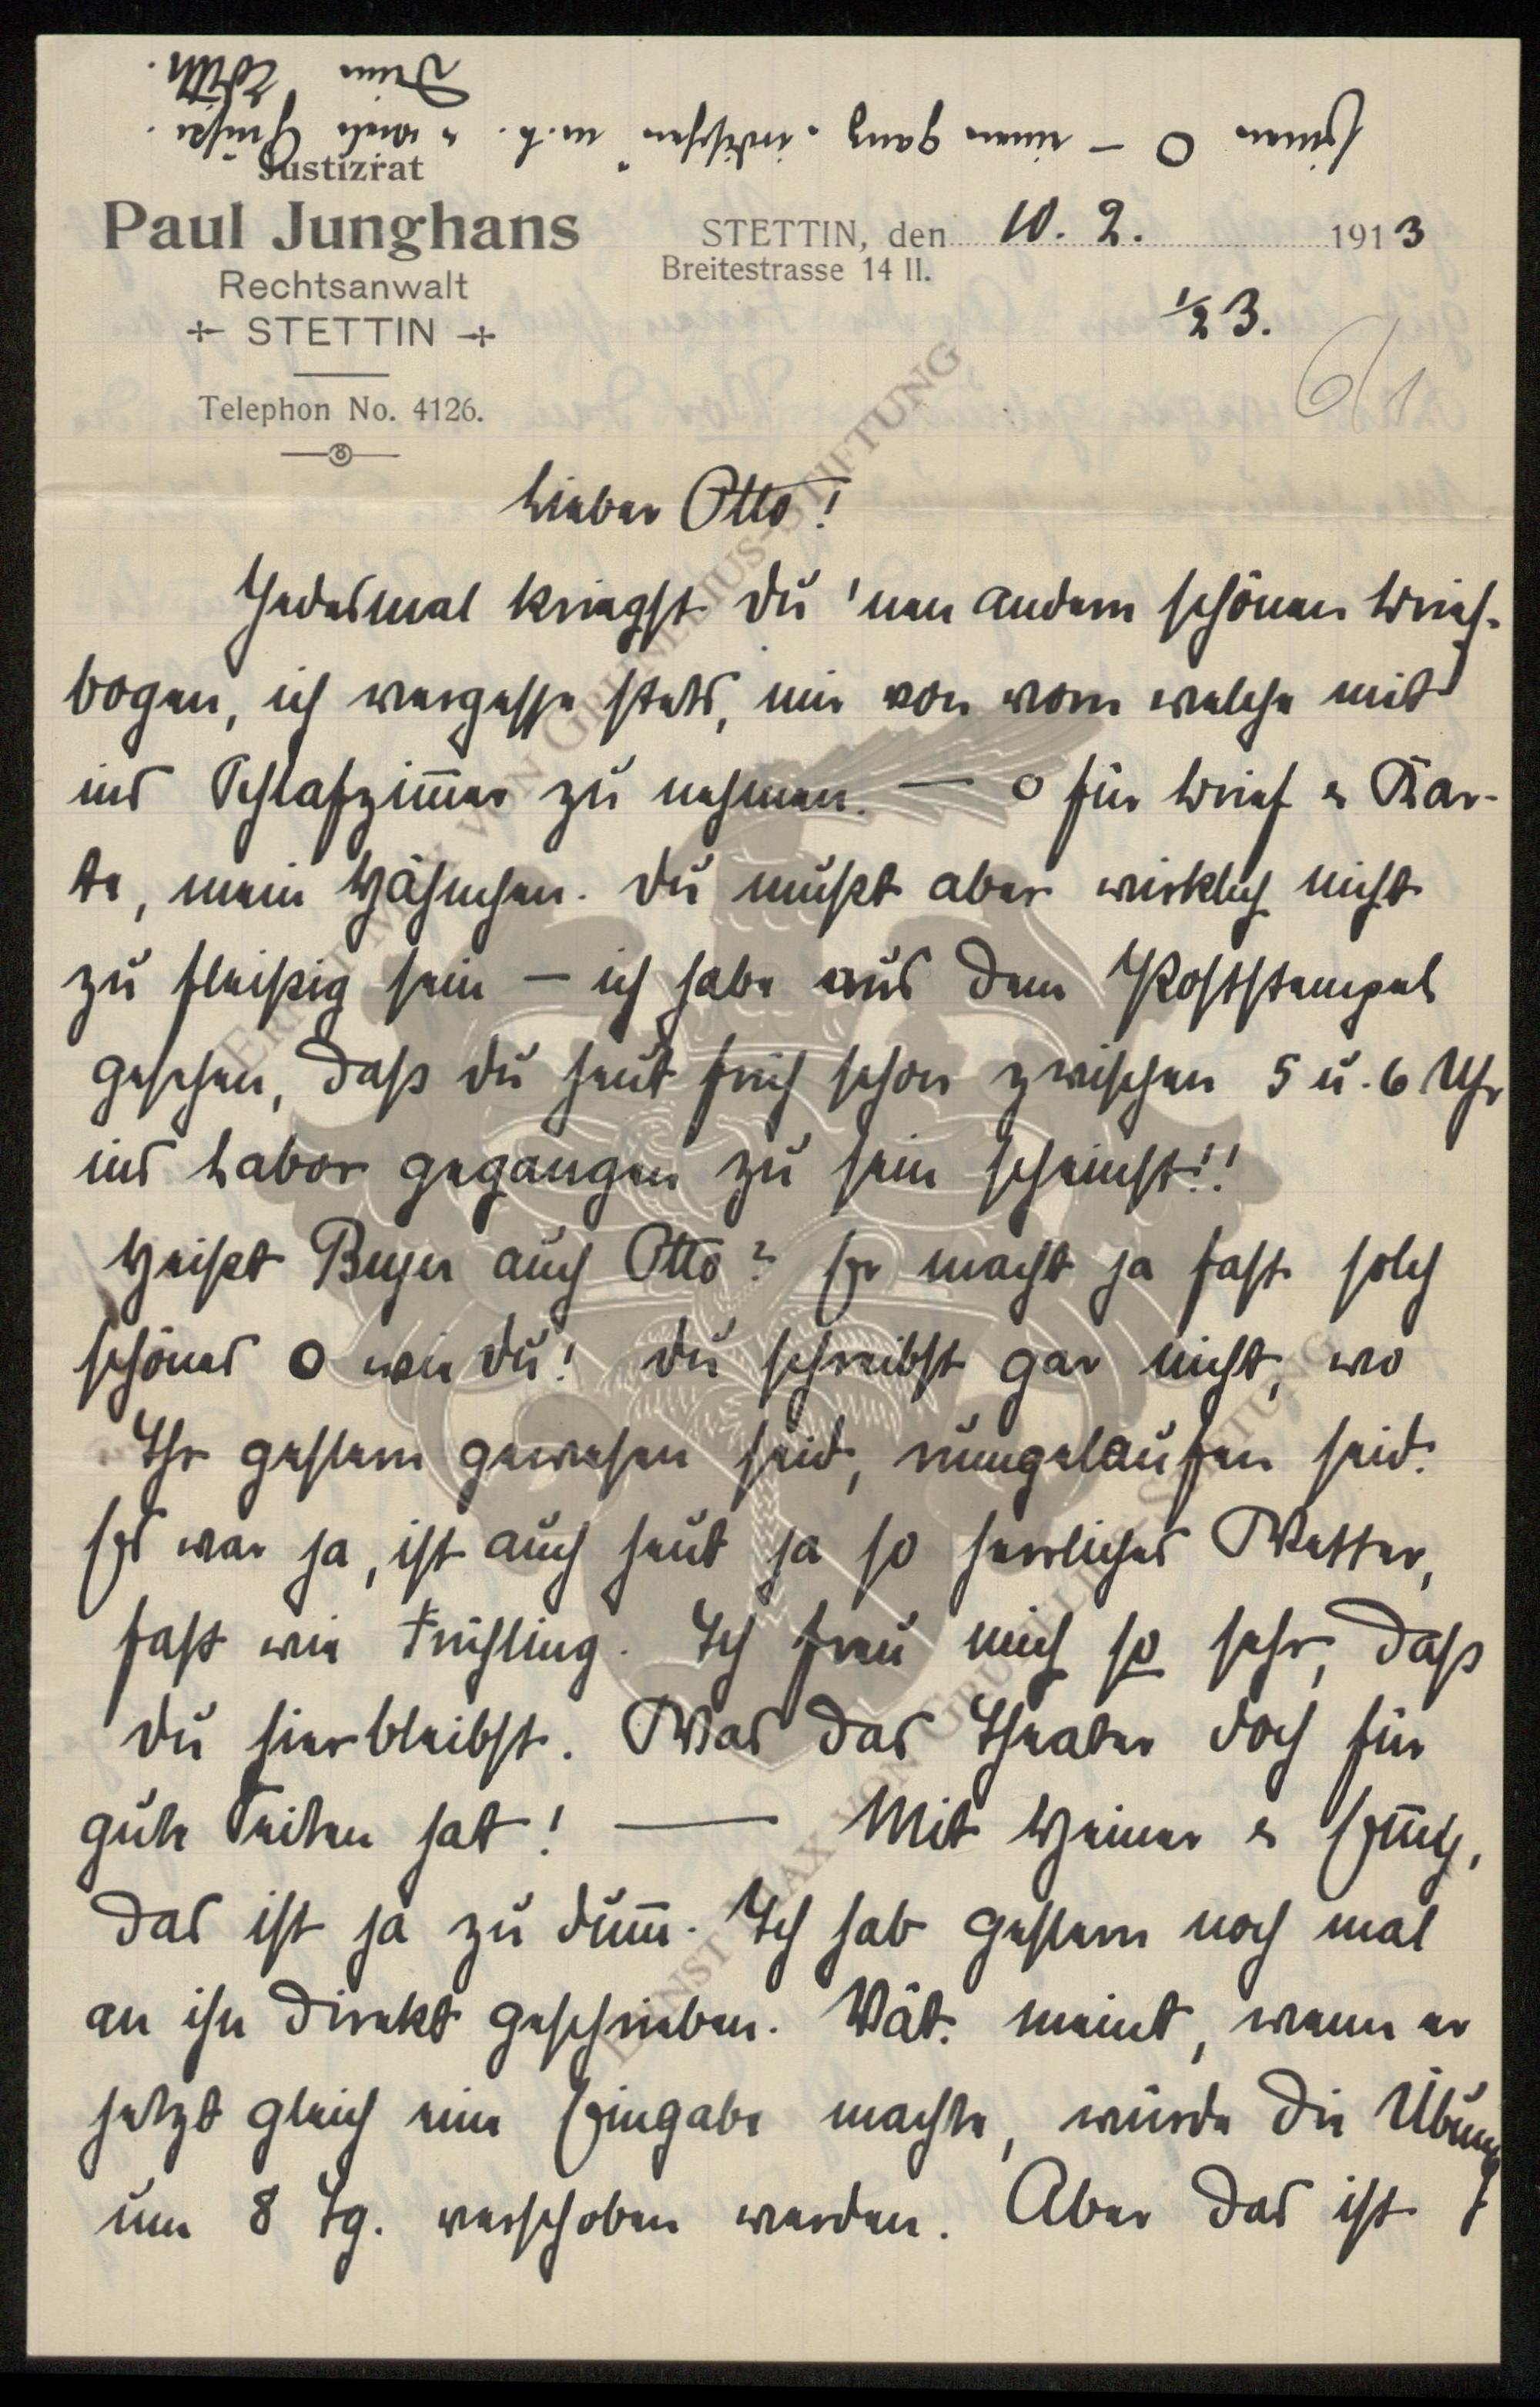 feinen O – einen ganz "indischen" m.h. u viele Grüße.
Deine Edith.
Justizrat
Paul Junghans
Rechtsanwalt
STETTIN
Telephon No. 4126.
STETTIN, den 10. 2. 1913
Breitestrasse 14 II.
½ 3.
6/1
Lieber Otto!
Jedesmal kriegst Du 'nen andern schönen Brief-
bogen, ich vergesse stets, mir von vorn welche mit
ins Schlafzim̄er zu nehmen. — o für Brief u Kar-
te, mein Hähnchen. Du mußt aber wirklich nicht
zu fleißig sein – ich habe aus dem Poststempel
gesehen, daß Du heut früh schon zwischen 5 u. 6 Uhr
ins Labor gegangen zu sein scheinst!!
Heißt Beyer auch Otto? Er macht ja fast solch
schönes O wie Du! Du schreibst gar nicht, wo
Ihr gestern gewesen seid, rumgelaufen seid.
Es war ja, ist auch heut ja so herrliches Wetter,
fast wie Frühling. Ich freu mich so sehr, daß
Du hierbleibst. Was das Theater doch für
gute Seiten hat! — Mit Heiner u
das ist ja zu dum̄. Ich hab gestern noch mal
an ihn direkt geschrieben. Vät. meint, wenn er
jetzt gleich eine Eingabe machte, würde die Übung
um 8 Tg. verschoben werden. Aber das ist
ERNST MAX VON GRUNELIUS-STIFTUNG
ERNST MAX VON GRUNELIUS-STIFTUNG